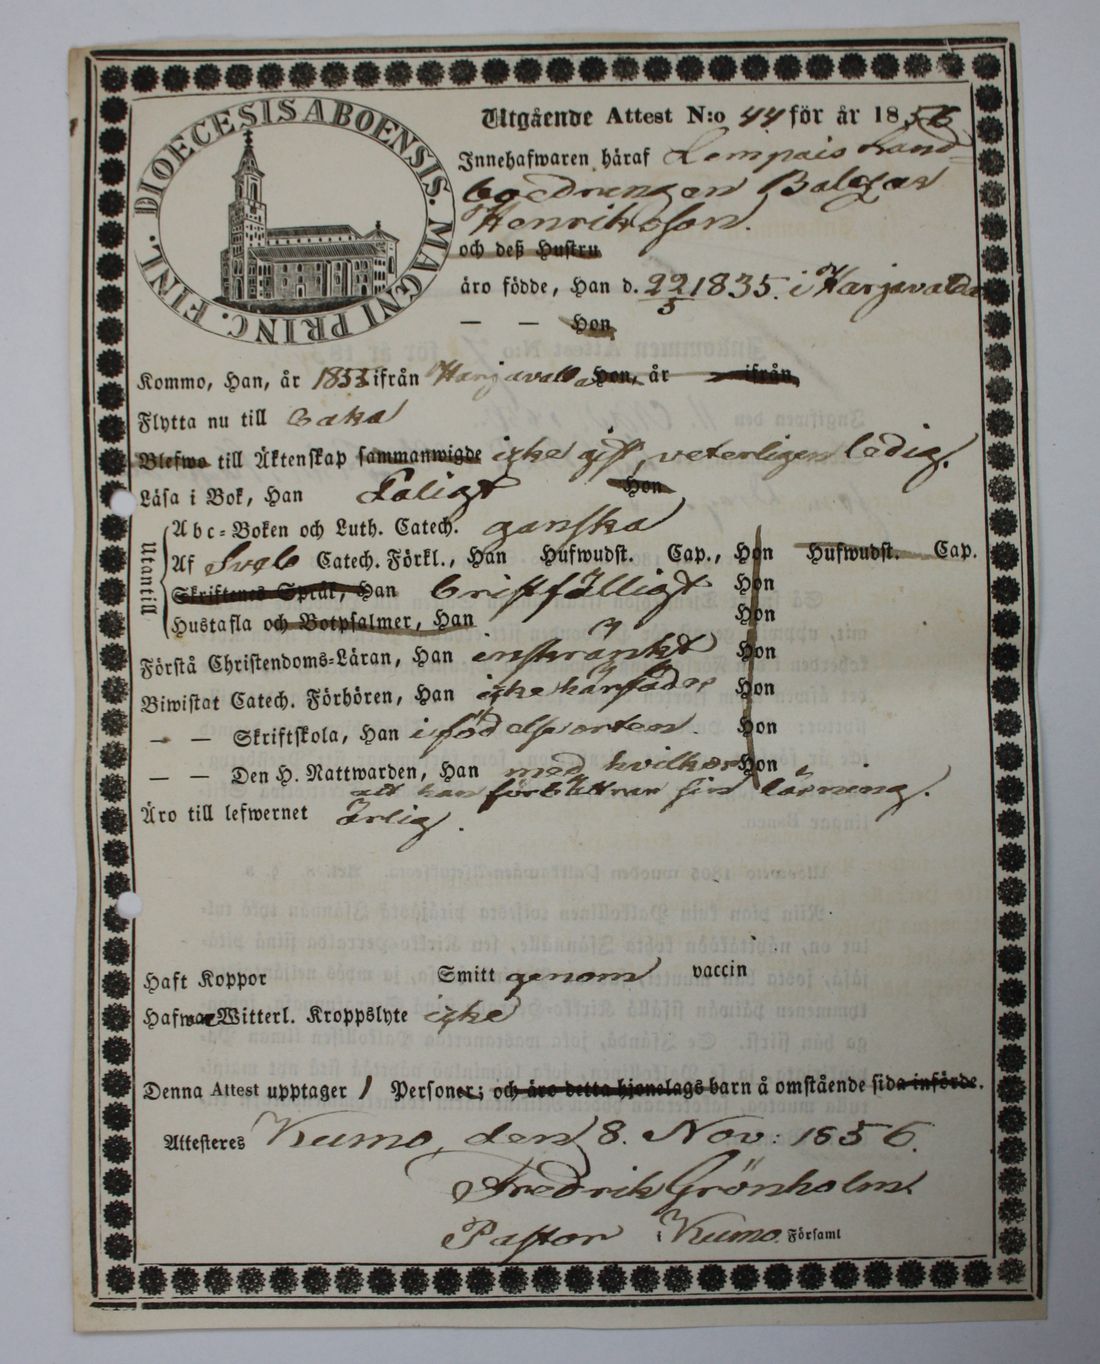 DIOECESIS ABOENSIS. MAGNI PRINC. FINL.
Utgående Attest N:o 44 för år 1856
Innehafwaren häraf Lempais Land
bo drengen Baltzar
Henriksson.
och deß Hustru
äro födde, Han d. 22/5 1835. i Harjavalda
— — Hon
Kommo, Han, år 1853 ifrån Harjavalda Hon, år ifrån
Flytta nu till
Blefwo till Äktenskap sammanwigde icke gift, veterligen ledig.
Läsa i Bok, Han Hon
Utantill
Abc-Boken och Luth. Catech. ganska
Af Sveb Catech. Förkl., Han Hufwudst. Cap., Hon Hufwudst. Cap.
Skriftenes Språk, Han bristfälligt Hon
Hustafla och Botpsalmer, Han Hon
Förstå Christendoms-Läran, Han inskränkt Hon
Biwistat Catech. Förhören, Han icke här Hon
— — Skriftskola, Han i födelseorten. Hon
— — Den H. Nattwarden, Han med hvilkor Hon
att han förbättrar sin läsning.
Äro till lefwernet Ärlig.
Haft Koppor Smitt genom vaccin
Hafwa Witterl. Kroppslyte icke
Denna Attest upptager 1 Personer; och äro detta hjonelags barn å omstående sida införde.
Attesteres Kumo, den 8. Nov: 1856.
Fredrik Grönholm
Pastor i Kumo. Församl